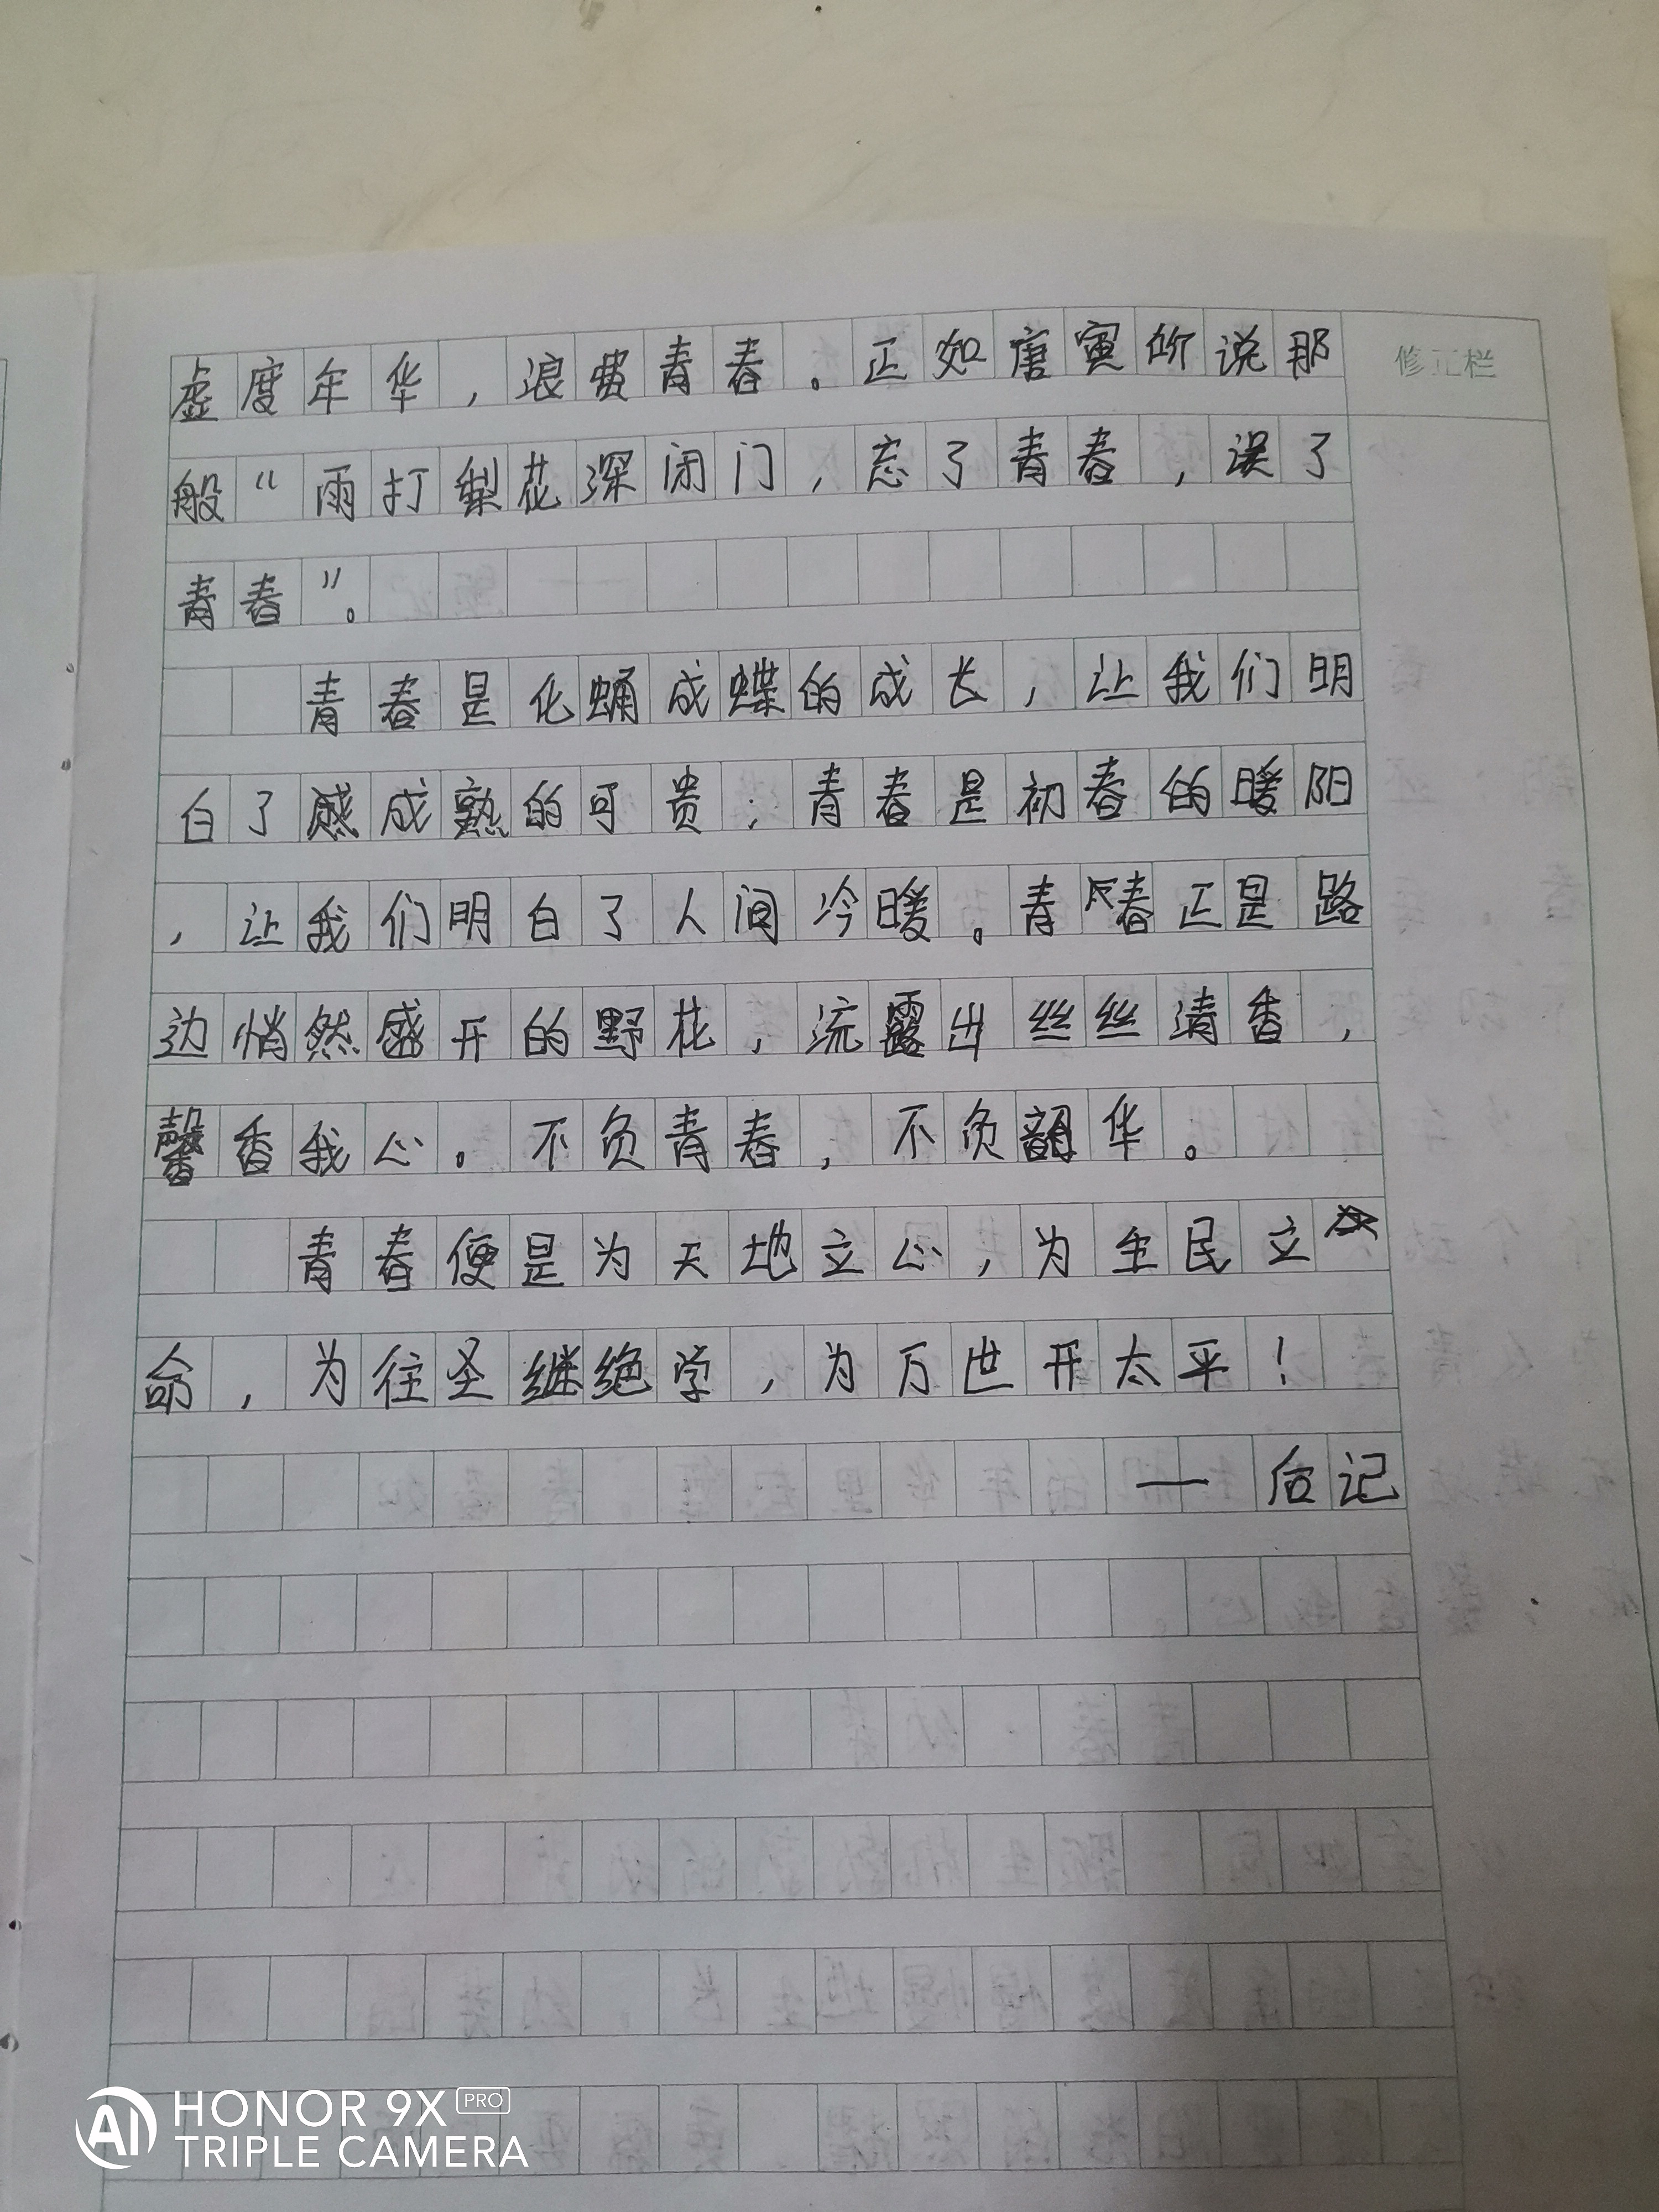 修正栏
虚度年华，浪费青春。正如唐寅所说那
般“雨打梨花深闭门，忘了青春，误了
青春”。
青春是化蛹成蝶的成长，让我们明
白了感成熟的可贵；青春是初春的暖阳
，让我们明白了人间冷暖。青春正是路
边悄然盛开的野花，流露出丝丝清香，
馨香我心。不负青春，不负韶华。
青春便是为天地立心，为生民立
命，为往圣继绝学，为万世开太平！
——后记
HONOR 9X PRO
TRIPLE CAMERA
AI